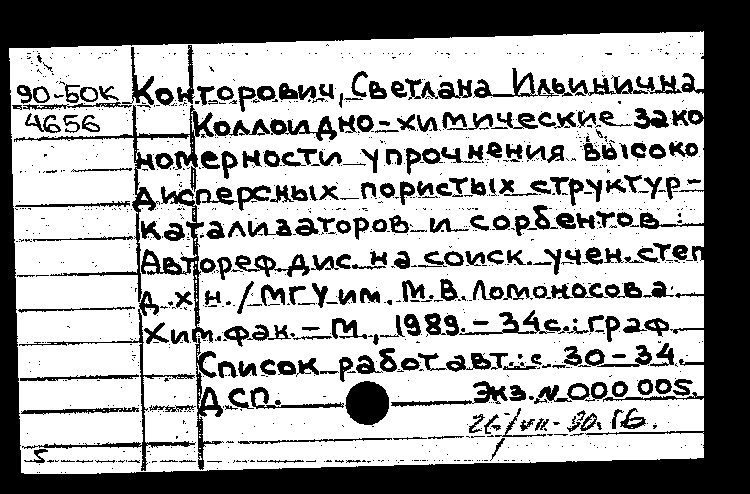 90-50к Конторович, Светлана Ильинична
4656 Коллоидно-химические зако
номерности упрочнения высоко
дисперсных пористых структур-
катализаторов и сорбентов :
Автореф. дис. на соиск. учен. степ
д. х. н. / МГУ им. М. В. Ломоносова.
Хим. фак. - М., 1989. - 34 с. : граф.
Список работ авт.: с 30-34.
ДСП. Экз. N 000 005.
5